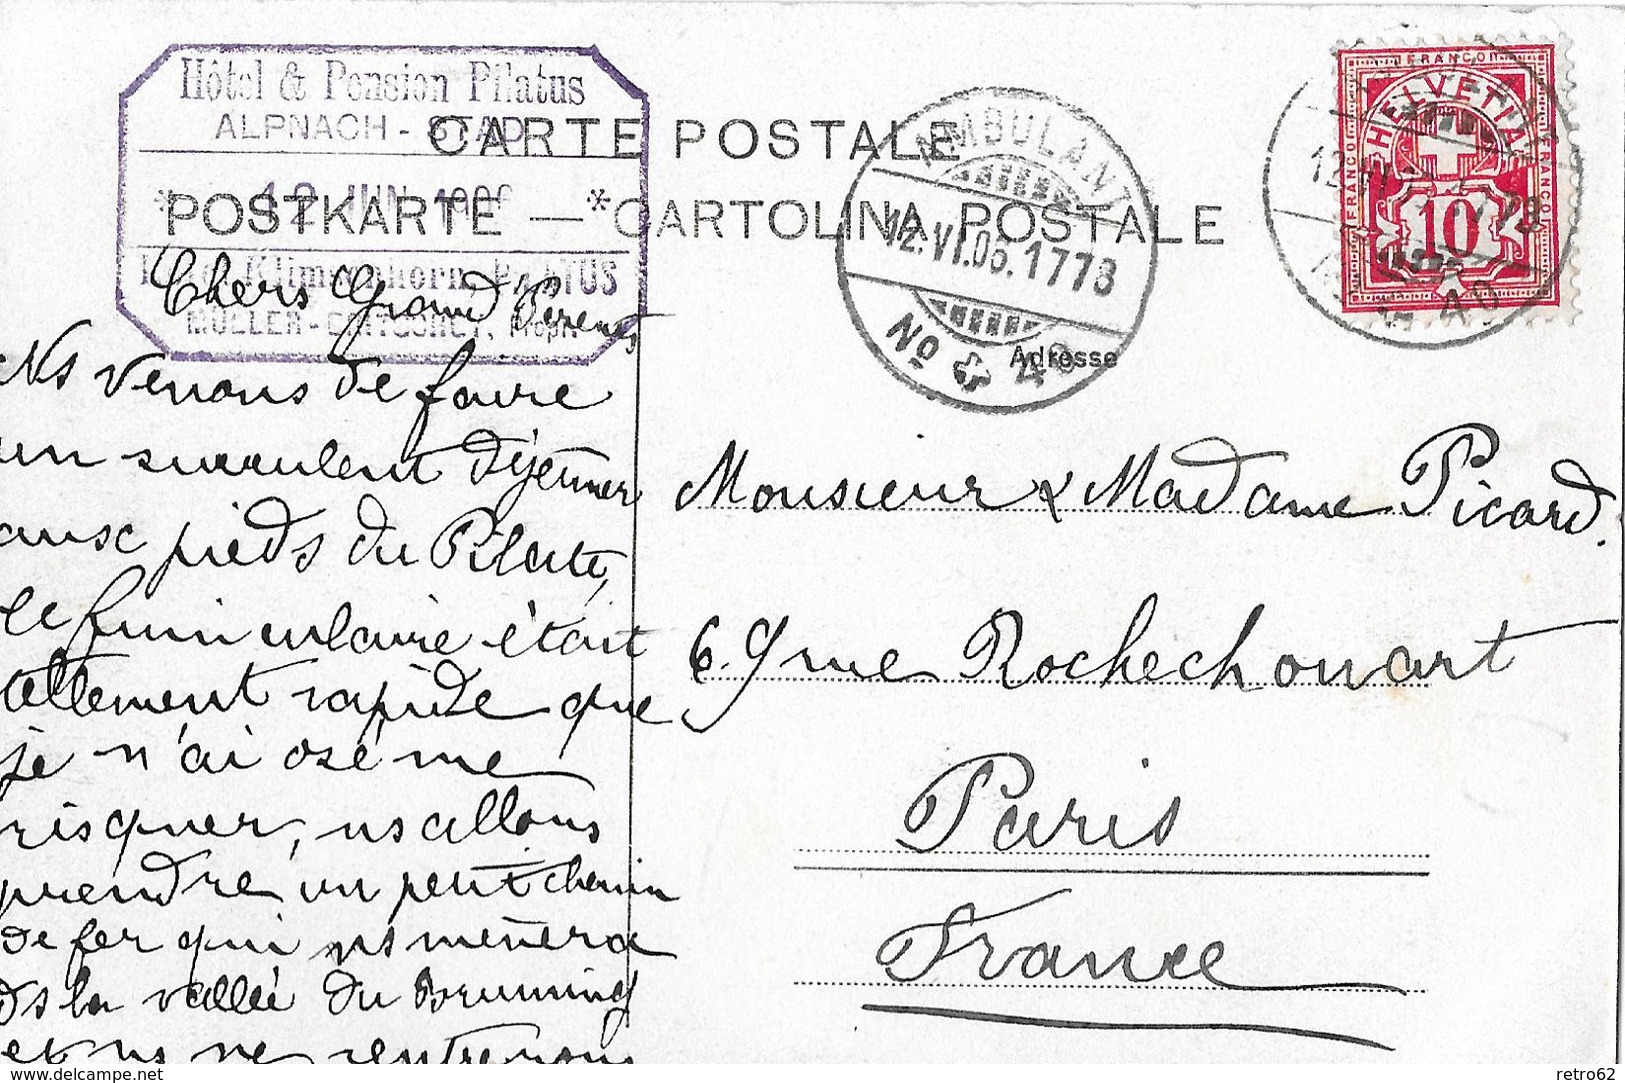 Hôtel & Pension Pilatus
ALPNACH - STAD
* 12 JUN 190
Klimsenhorn, PILATUS
MÜLLER- Propr.
CARTE POSTALE
POSTKARTE — * CARTOLINA POSTALE
AMBULANT
12.VI.06.1773
No 40
HELVETIA
FRANCO
10
12 VI
40
Adresse
Chers Grand Parents
Ns venons de faire
un succulent déjeuner
aux pieds du Pilate,
le funiculaire était
tellement rapide que
je n'ai osé me
risquer, ns allons
prendre un petit chemin
de fer qui ns mènera
ds la vallée du Brunning
et ns ne rentrerons
Monsieur & Madame Picard.
69 rue Rochechouart
Paris
France
delcampe.net
retro62